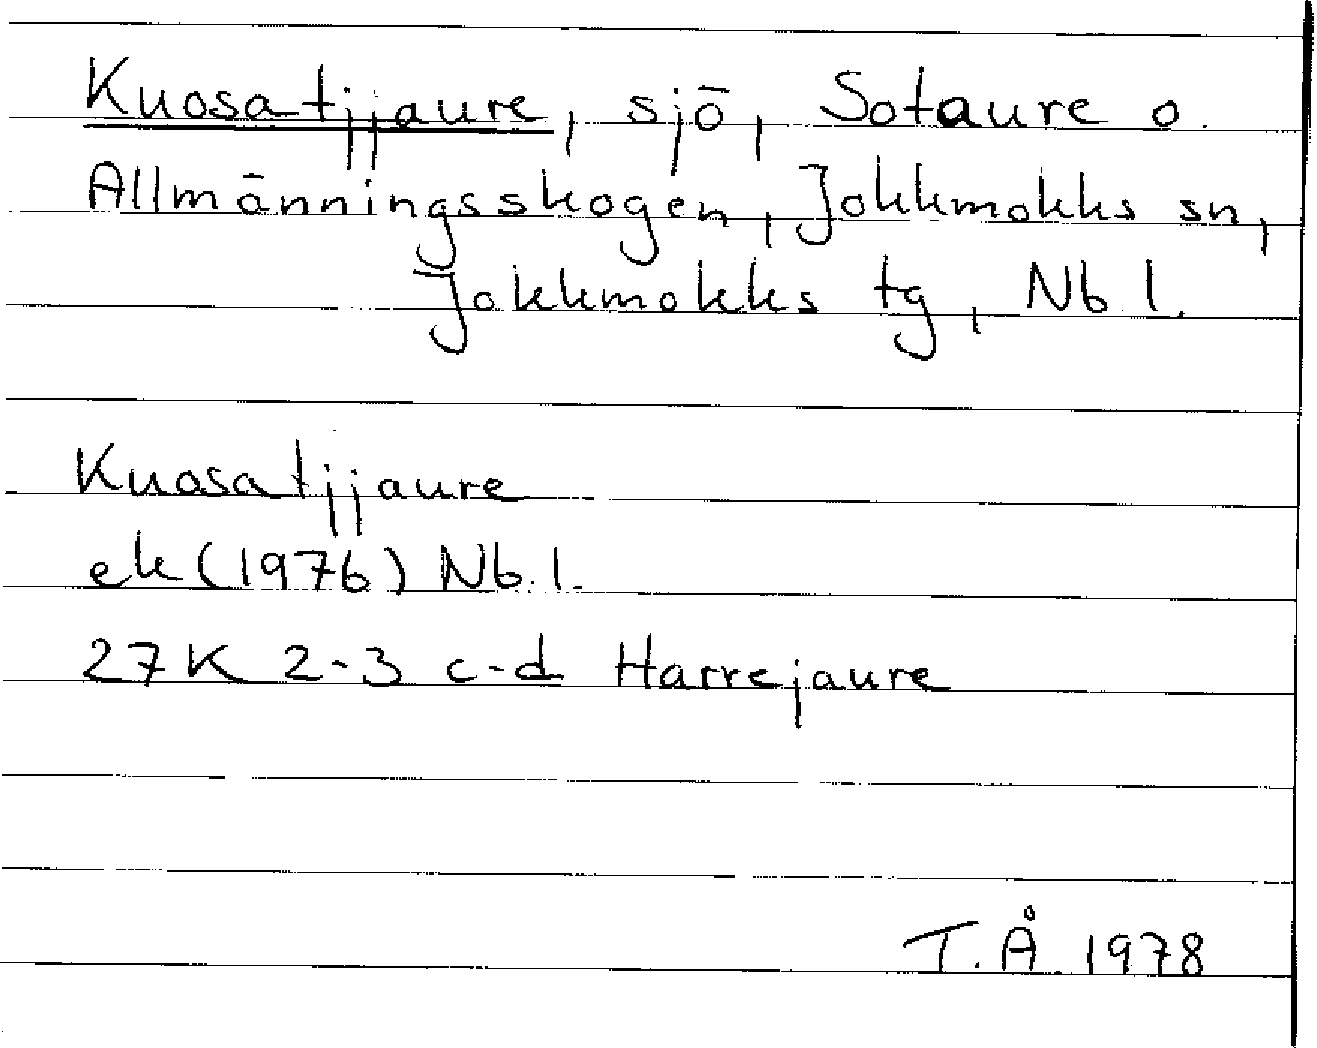 Kuosatjjaure, sjö, Sotaure o.
Allmänningsskogen, Jokkmokks sn,
Jokkmokks tg, Nb l.
Kuosatjjaure
ek (1976) Nb. l.
27K 2-3 c-d Harrejaure
T.Å. 1978